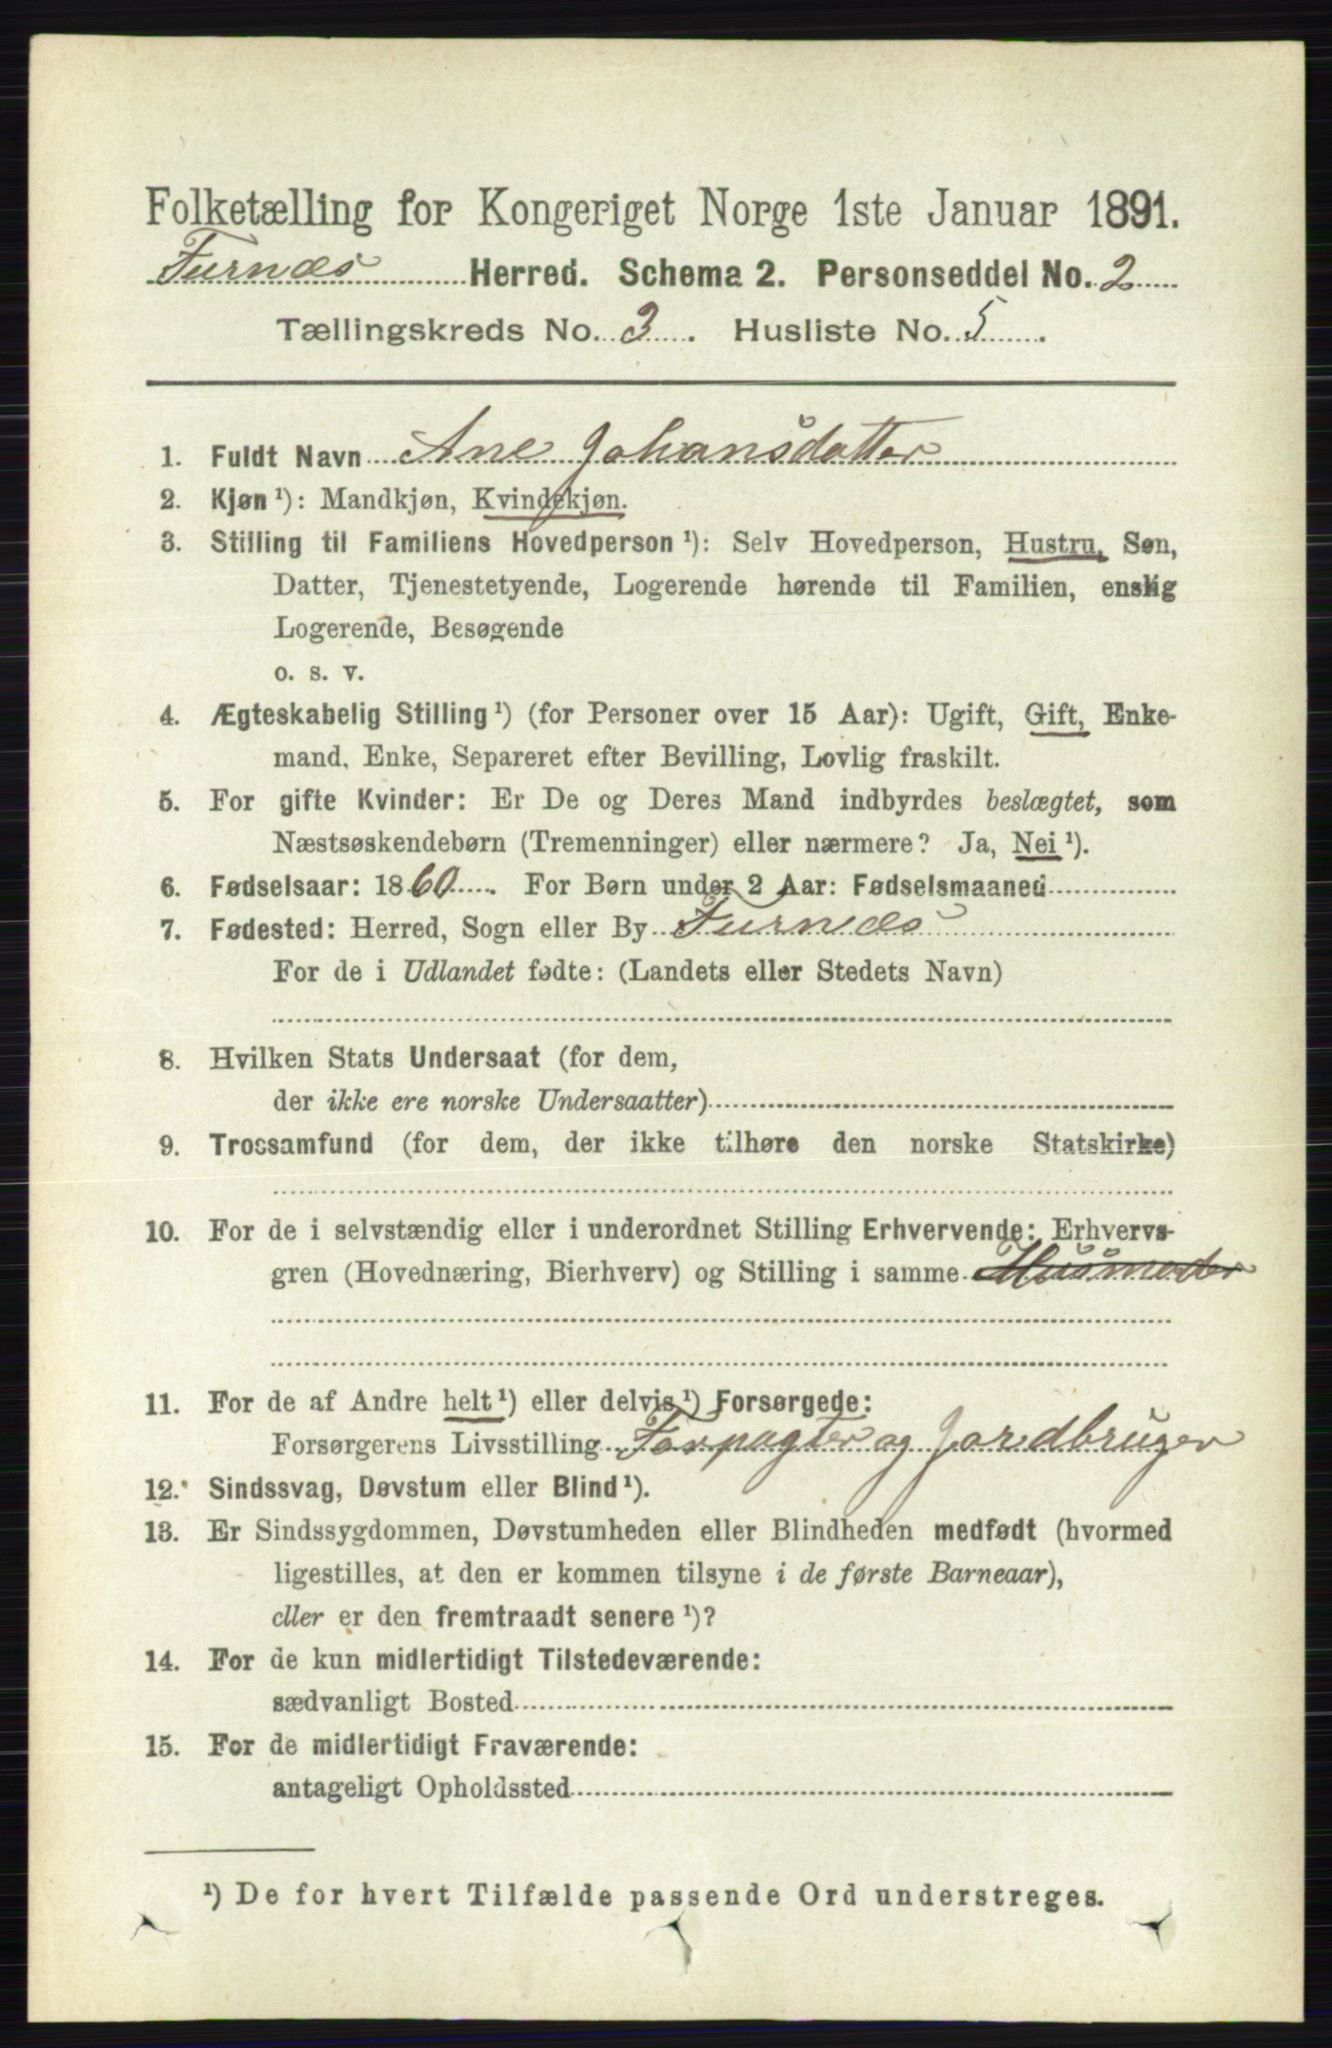 Folketælling for Kongeriget Norge 1ste Januar 1891.
Furnes Herred. Schema 2. Personseddel No. 2
Tællingskreds No. 3. Husliste No. 5.
1. Fuldt Navn Ane Johansdatter
2. Kjøn ¹): Mandkjøn, Kvindekjøn.
3. Stilling til Familiens Hovedperson ¹): Selv Hovedperson, Hustru, Søn,
Datter, Tjenestetyende, Logerende hørende til Familien, enslig
Logerende, Besøgende
o. s. v.
4. Ægteskabelig Stilling ¹) (for Personer over 15 Aar): Ugift, Gift, Enke-
mand, Enke, Separeret efter Bevilling, Lovlig fraskilt.
5. For gifte Kvinder: Er De og Deres Mand indbyrdes beslægtet, som
Næstsøskendebørn (Tremenninger) eller nærmere? Ja, Nei ¹).
6. Fødselsaar: 1860. For Børn under 2 Aar: Fødselsmaaned
7. Fødested: Herred, Sogn eller By Furnes
For de i Udlandet fødte: (Landets eller Stedets Navn)
8. Hvilken Stats Undersaat (for dem,
der ikke ere norske Undersaatter)
9. Trossamfund (for dem, der ikke tilhøre den norske Statskirke)
10. For de i selvstændig eller i underordnet Stilling Erhvervende: Erhvervs-
gren (Hovednæring, Bierhverv) og Stilling i samme
11. For de af Andre helt ¹) eller delvis ¹) Forsørgede:
Forsørgerens Livsstilling Forpagter og Jordbruger
12. Sindssvag, Døvstum eller Blind ¹).
13. Er Sindssygdommen, Døvstumheden eller Blindheden medfødt (hvormed
ligestilles, at den er kommen tilsyne i de første Barneaar),
eller er den fremtraadt senere ¹)?
14. For de kun midlertidigt Tilstedeværende:
sædvanligt Bosted
15. For de midlertidigt Fraværende:
antageligt Opholdssted
¹) De for hvert Tilfælde passende Ord understreges.